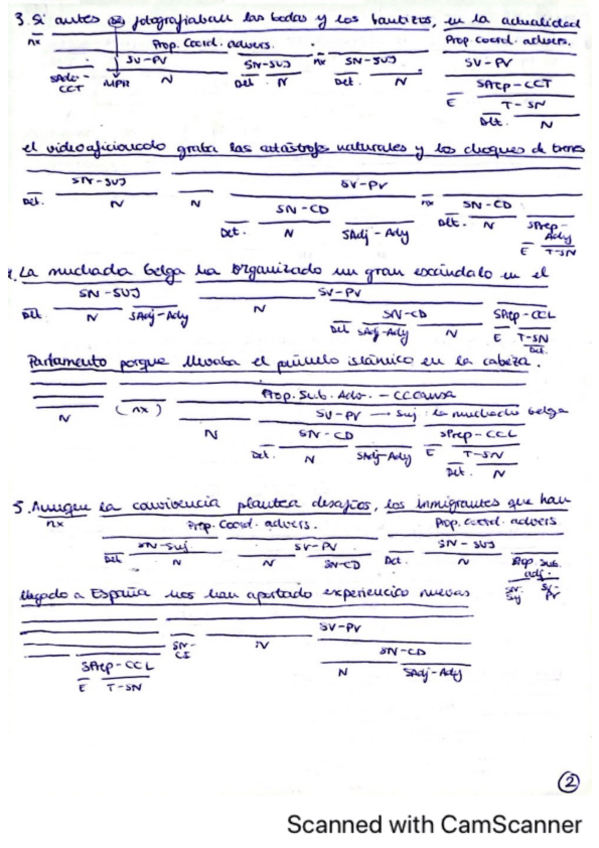 3. Si antes se fotografiaban las bodas y los bautizos, en la actualidad
nx Prop. Coord. advers. Prop coord. advers.
SV-PV SN-SUJ nx SN-SUJ SV-PV
SAdv-CCT MPR N Det. N Det. N SPrep-CCT
E T-SN
Det. N
el videoaficionado graba las catástrofes naturales y los choques de trenes
SN-SUJ SV-PV
Det. N N SN-CD nx SN-CD
Det. N SAdj-Ady Det. N SPrep-Ady
E T-SN
. La muchacha belga ha organizado un gran escándalo en el
SN-SUJ SV-PV
Det N SAdj-Ady N SN-CD SPrep-CCL
Det SAdj-Ady N E T-SN
Det.
Parlamento porque llevaba el pañuelo islámico en la cabeza.
Prop. Sub. Adv. - CCCausa
(nx) SV-PV → Suj: la muchacha belga
N N SN-CD SPrep-CCL
Det. N SAdj-Ady E T-SN
Det. N
5. Aunque la convivencia plantea desafíos, los inmigrantes que han
nx Prop. Coord. advers. Prop. coord. advers
SN-Suj SV-PV SN-SUJ
Det N N SN-CD Det. N Prop sub. adj.
SN-Suj SV-PV
llegado a España nos han aportado experiencias nuevas
SV-PV
SN-CI N SN-CD
SPrep-CCL N SAdj-Ady
E T-SN
2
Scanned with CamScanner